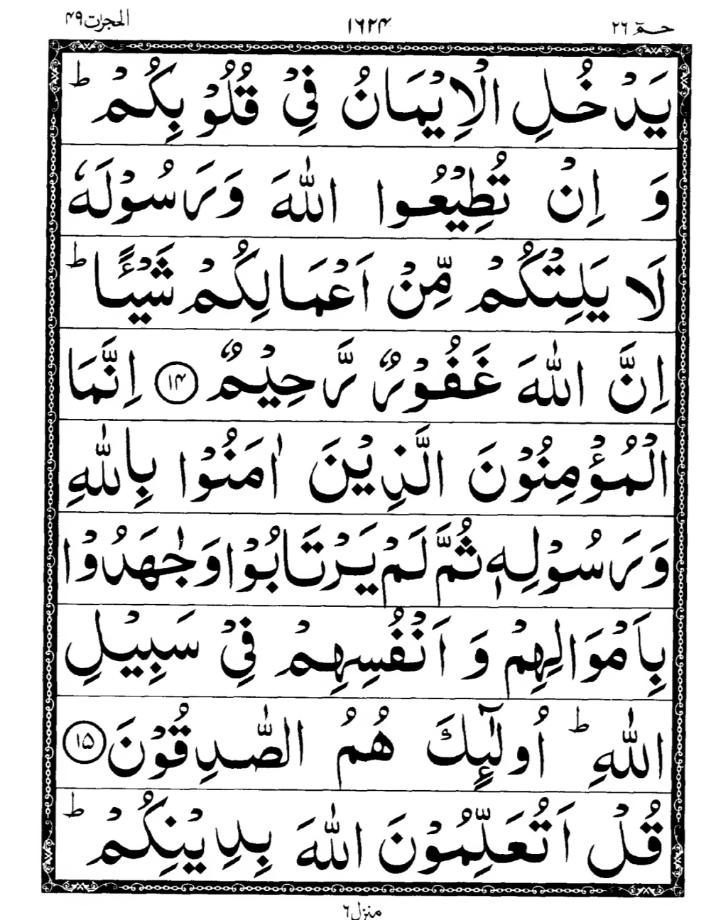 حٰمٓ ٢٦ ١٦٢۴ الحجرات ۴٩
يَدْخُلِ الْاِيْمَانُ فِيْ قُلُوْبِكُمْ ؕ
وَ اِنْ تُطِيْعُوا اللّٰهَ وَرَسُوْلَهٗ
لَا يَلِتْكُمْ مِّنْ اَعْمَالِكُمْ شَيْـًٔا ؕ
اِنَّ اللّٰهَ غَفُوْرٌ رَّحِيْمٌ ١۴ اِنَّمَا
الْمُؤْمِنُوْنَ الَّذِيْنَ اٰمَنُوْا بِاللّٰهِ
وَرَسُوْلِهٖ ثُمَّ لَمْ يَرْتَابُوْا وَجٰهَدُوْا
بِاَمْوَالِهِمْ وَ اَنْفُسِهِمْ فِيْ سَبِيْلِ
اللّٰهِ ؕ اُولٰٓئِكَ هُمُ الصّٰدِقُوْنَ ١۵
قُلْ اَتُعَلِّمُوْنَ اللّٰهَ بِدِيْنِكُمْ ؕ
منزل ٦